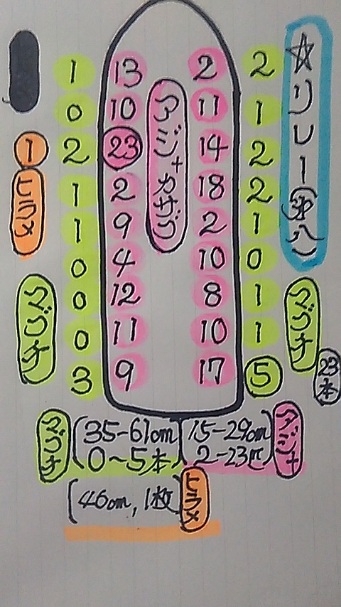 ☆リレー
アジ+カサゴ
1 13 2 2
0 10 11 1
2 23 14 2
1 2 18 2
1 9 2 1
0 4 10 0
0 12 8 1
0 11 10 1
3 9 17 5
1
ヒラメ
マゴチ
マゴチ
23本
マゴチ
35-61cm
0～5本
アジ+
15-29cm
2-23匹
ヒラメ
46cm, 1枚